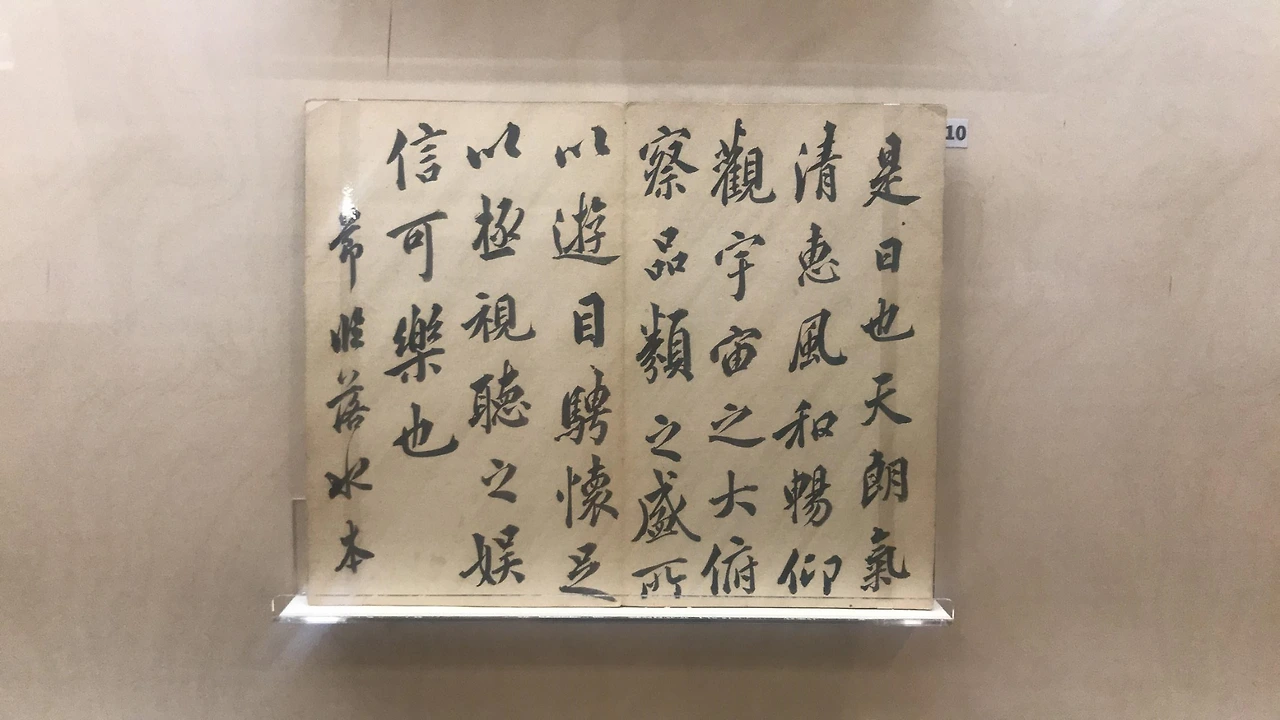 是日也天朗氣
清惠風和暢仰
觀宇宙之大俯
察品類之盛所
以遊目騁懷足
以極視聽之娱
信可樂也
常臨落水本
10